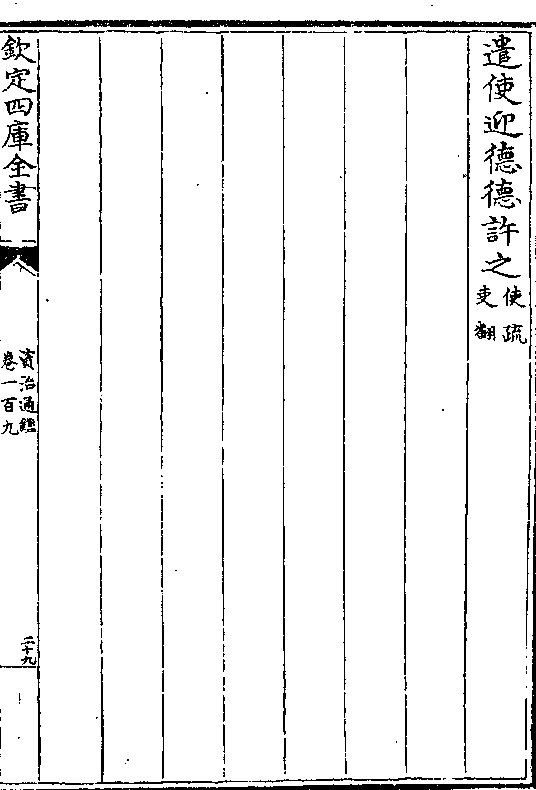 遣使迎德德許之使疏吏翻
欽定四庫全書
資治通鑑
卷一百九
二十九